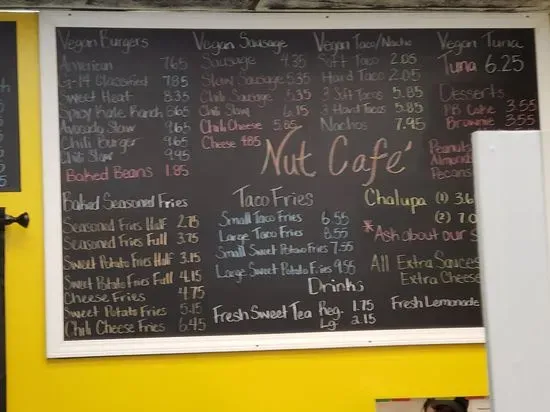 Vegan Burgers
American 7.65
G-14 Classified 7.85
Sweet Heat 8.35
Spicy Kale Ranch 8.65
Avocado Slaw 9.65
Chili Burger 9.65
Chili Slaw 9.95
Baked Beans 1.85
Vegan Sausage
Sausage 4.35
Slaw Sausage 5.35
Chili Sausage 5.35
Chili Slaw 6.15
Chili Cheese 5.85
Cheese 4.85
Vegan Taco/Nacho
Soft Taco 2.05
Hard Taco 2.05
3 Soft Tacos 5.85
3 Hard Tacos 5.85
Nachos 7.95
Vegan Tuna
Tuna 6.25
Desserts
PB Cake 3.55
Brownie 3.55
Peanuts
Almonds
Pecans
Nut Café
Baked Seasoned Fries
Seasoned Fries Half 2.75
Seasoned Fries Full 3.75
Sweet Potato Fries Half 3.15
Sweet Potato Fries Full 4.15
Cheese Fries 4.75
Sweet Potato Fries 5.15
Chili Cheese Fries 6.45
Taco Fries
Small Taco Fries 6.55
Large Taco Fries 8.55
Small Sweet Potato Fries 7.55
Large Sweet Potato Fries 9.55
Drinks
Fresh Sweet Tea Reg. 1.75
Lg. 2.15
Chalupa (1) 3.6
(2) 7.0
*Ask about our S
All Extra Sauces
Extra Cheese
Fresh Lemonade